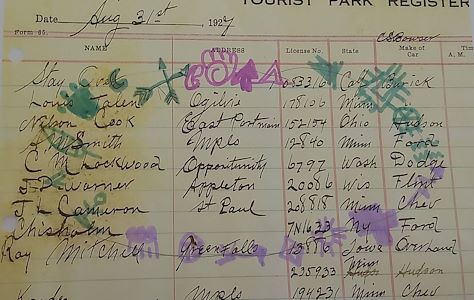 TOURIST PARK REGISTER
Date Aug 31st 1927
Form 86. C.S. Bowser
NAME ADDRESS License No. State Make of Car Tim A.M.
Stay 53316 Cal Buick
Louis Ogilvie 178106 Minn "
Nelson Cook East Portman 152154 Ohio Hudson
A. M. Smith Mpls 12840 Minn Ford
C M Lockwood Opportunity 6797 Wash Dodge
J. D. Warner Appleton 20086 Wis Flint
J L Cameron St Paul 208818 Minn Chev
Chisholm 7N1633 Ny Ford
Ray Mitchell Green Falls 13886 Iowa Overland
235933 Minn Hudson
Mpls 194231 Minn Chev